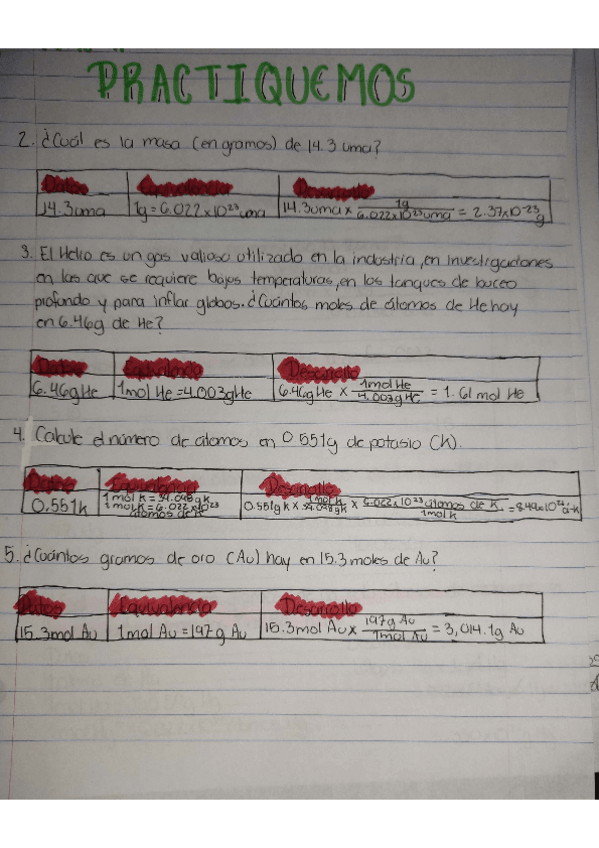 PRACTIQUEMOS
2. ¿Cuál es la masa (en gramos) de 14.3 uma?
Datos Equivalencia Desarrollo
14.3uma 1g = 6.022x10²³ uma 14.3uma x 1g / 6.022x10²³ uma = 2.37x10⁻²³ g
3. El Helio es un gas valioso utilizado en la industria, en investigaciones
en las que se requiere bajas temperaturas, en los tanques de buceo
profundo y para inflar globos. ¿Cuántos moles de átomos de He hay
en 6.46g de He?
Datos Equivalencia Desarrollo
6.46g He 1mol He = 4.003g He 6.46g He x 1mol He / 4.003g He = 1.61 mol He
4. Calcule el número de átomos en 0.551g de potasio (K).
Datos Equivalencia Desarrollo
0.551k 1mol k = 39.098g k
1mol k = 6.022x10²³
átomos de k
0.551g k x 1mol k / 39.098g k x 6.022x10²³ átomos de k / 1mol k = 8.49x10²¹ á-k
5. ¿Cuántos gramos de oro (Au) hay en 15.3 moles de Au?
Datos Equivalencia Desarrollo
15.3mol Au 1mol Au = 197g Au 15.3mol Au x 197g Au / 1mol Au = 3,014.1g Au